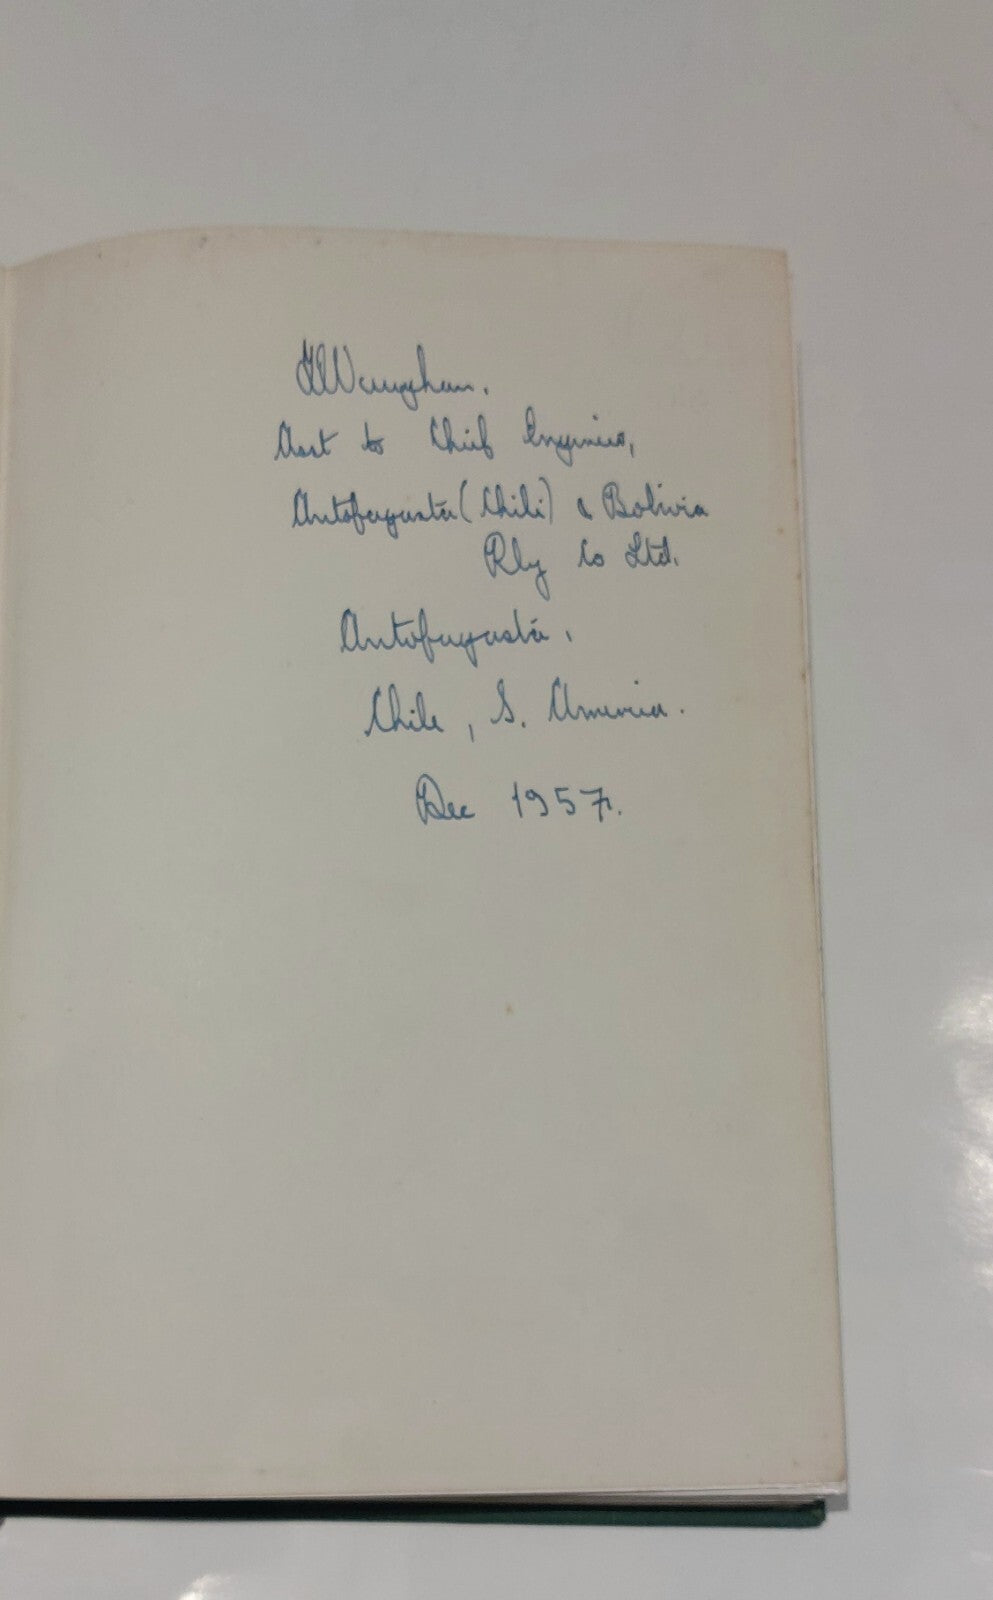 Vaughan.
Asst to Chief Engineer,
Antofagasta (Chili) & Bolivia
Rly Co Ltd.
Antofagasta,
Chile, S. America.
Dec 1957.